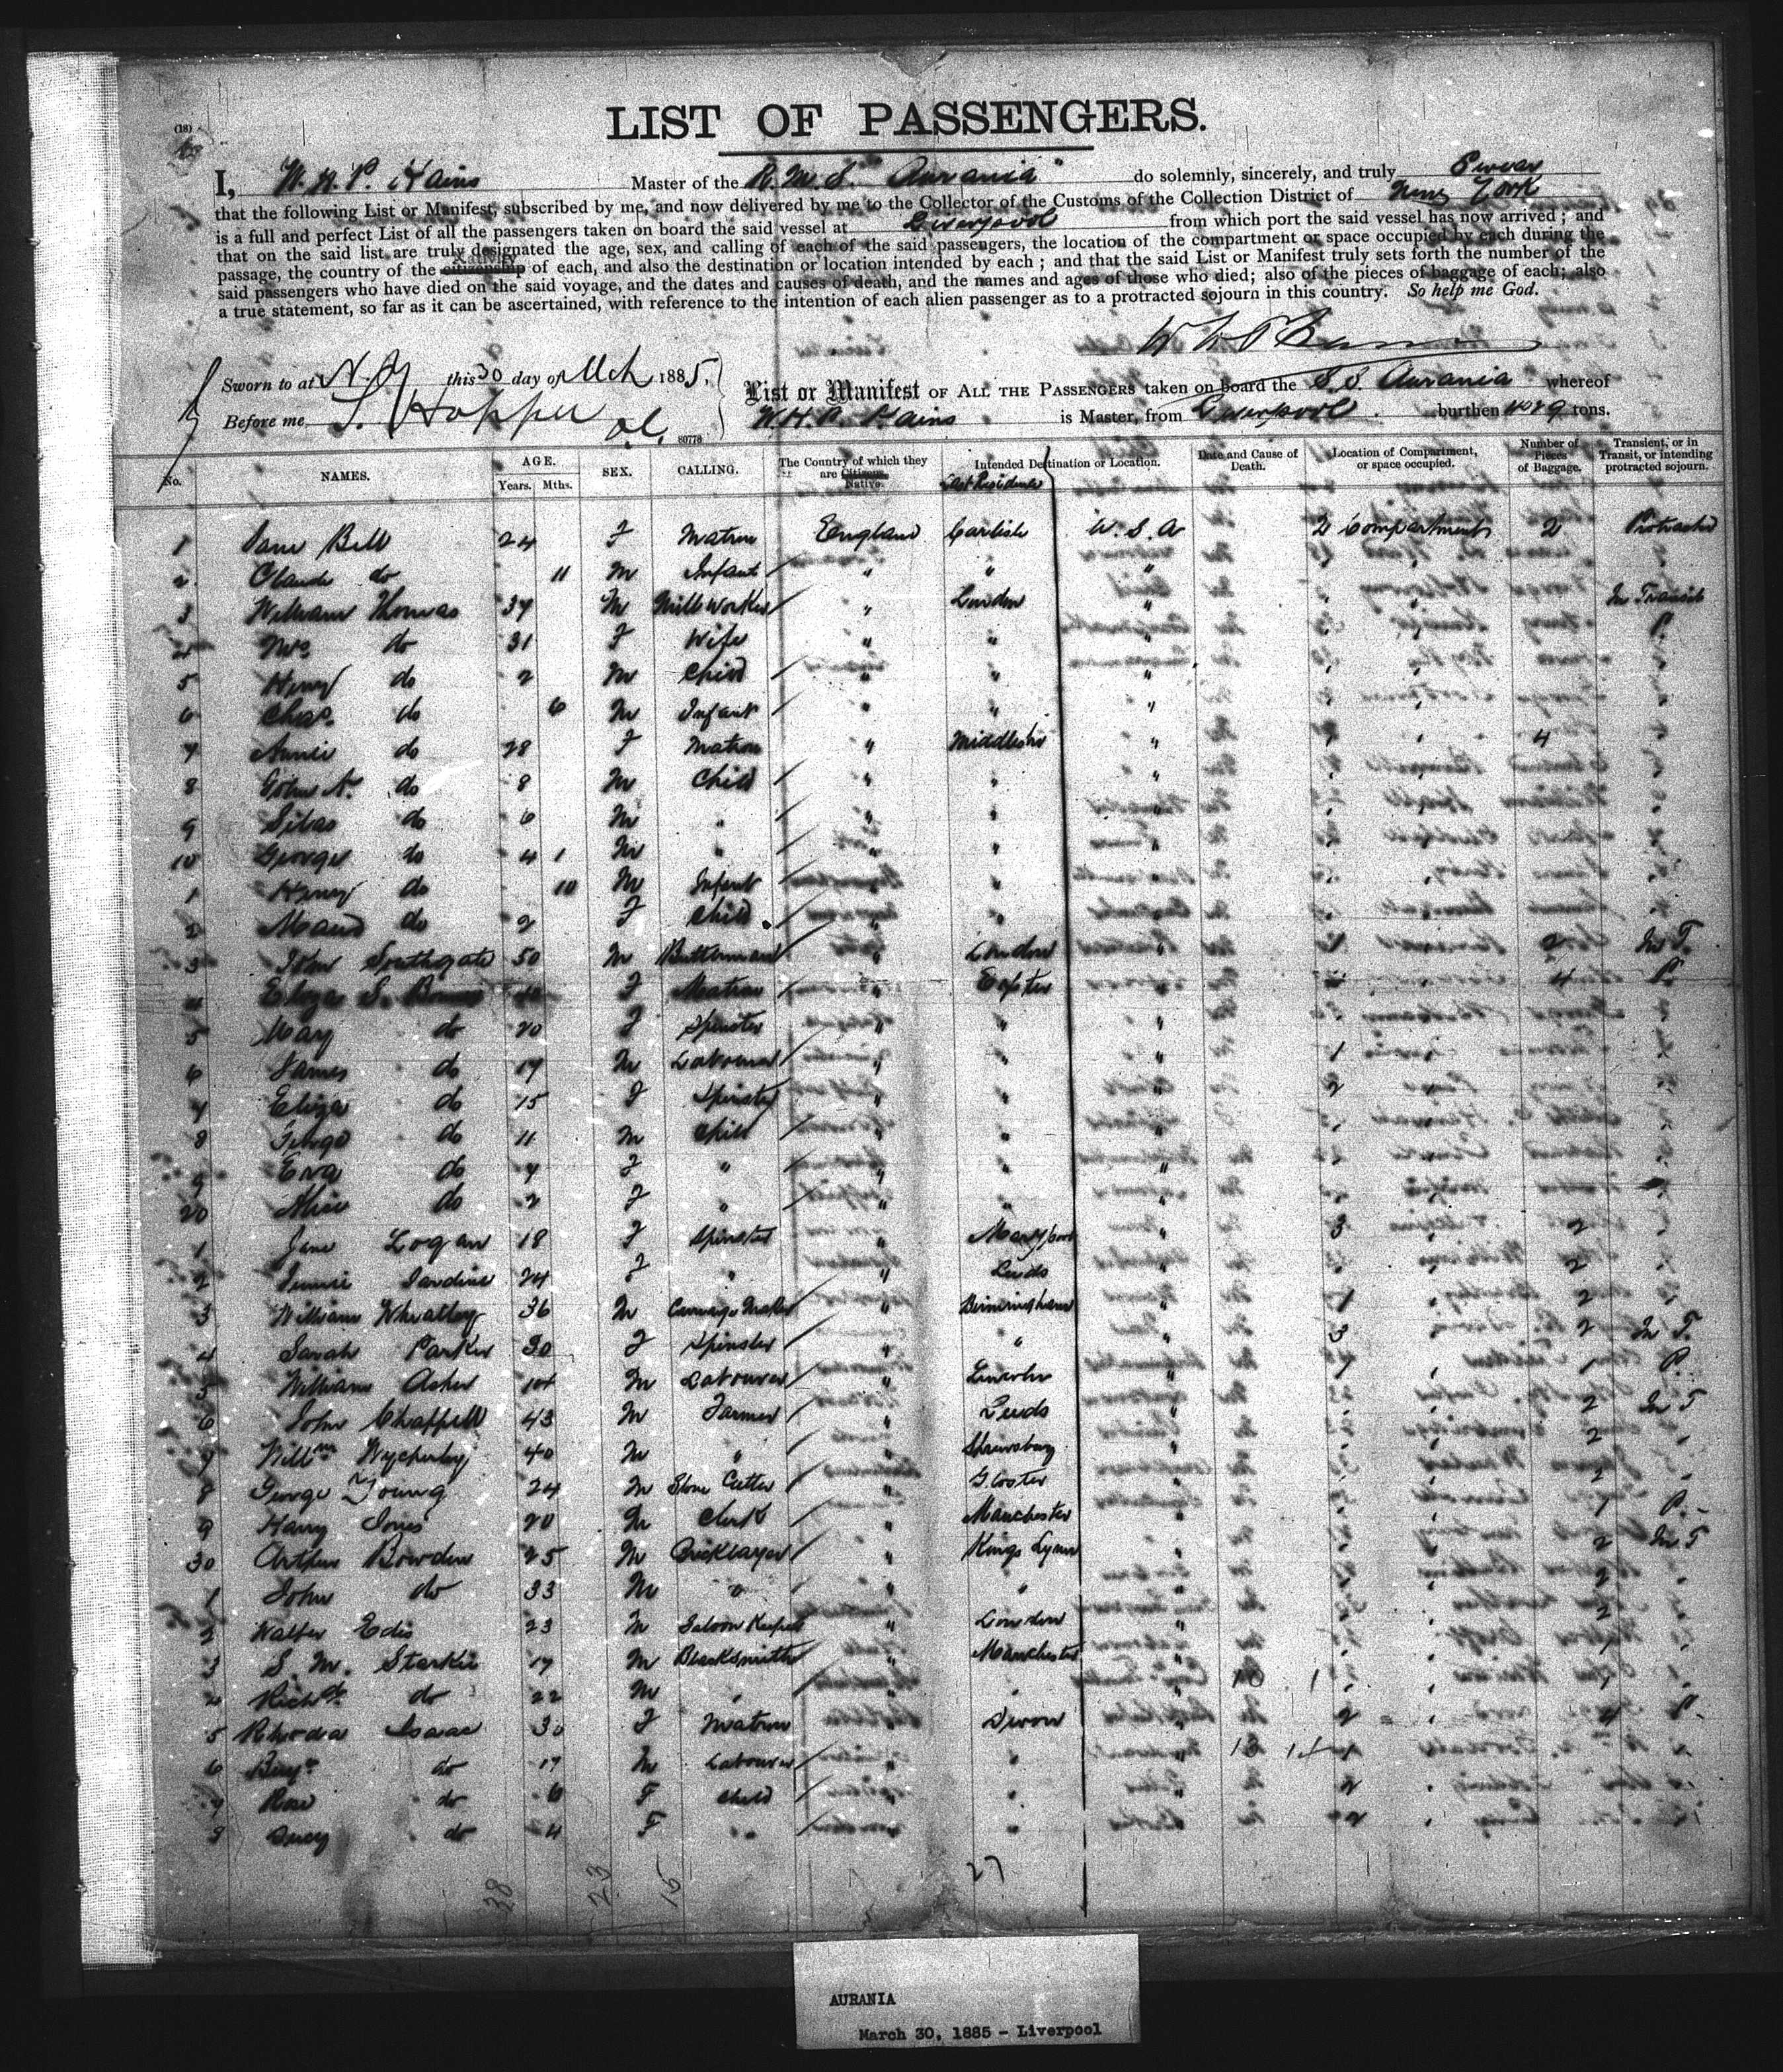 (18)
LIST OF PASSENGERS.
I, W. H. P. Hains Master of the R. M. S. "Aurania" do solemnly, sincerely, and truly Swear
that the following List or Manifest, subscribed by me, and now delivered by me to the Collector of the Customs of the Collection District of New York
is a full and perfect List of all the passengers taken on board the said vessel at Liverpool from which port the said vessel has now arrived; and
that on the said list are truly designated the age, sex, and calling of each of the said passengers, the location of the compartment or space occupied by each during the
Nativity
passage, the country of the citizenship of each, and also the destination or location intended by each; and that the said List or Manifest truly sets forth the number of the
said passengers who have died on the said voyage, and the dates and causes of death, and the names and ages of those who died; also of the pieces of baggage of each; also
a true statement, so far as it can be ascertained, with reference to the intention of each alien passenger as to a protracted sojourn in this country. So help me God.
Sworn to at N.Y this 30 day of Mch 1885,
Before me
80778
List or Manifest OF ALL THE PASSENGERS taken on board the S.S. Aurania whereof
W. H. P. Hains is Master, from Liverpool. burthen tons.
No. NAMES. AGE. Years. Mths. SEX. CALLING. The Country of which they are Citizens. Native. Intended Destination or Location. Last Residence Date and Cause of Death. Location of Compartment, or space occupied. Number of Pieces of Baggage. Transient, or in Transit, or intending protracted sojourn.
1 Jane Bell 24 F Matron England Carlisle U.S.A 2 Compartment 2 Protracted
2 Claude do 11 M Infant " " "
3 William Thomas 37 M Millworker " London " In Transit
4 Mrs do 31 F Wife " " " P.
5 Henry do 2 M Child " " "
6 Chas. do 6 M Infant " " "
7 Annie do 28 F Matron " " 4
8 John do 8 M Child " " "
9 Silas do 6 M " " " "
10 George do 4 1 M " " " "
1 Henry do 10 M Infant " "
2 Maud do 2 F Child " "
3 John Southgate 50 M " London " 1 2 In T.
4 Eliza S. F Matron " " 4 P.
5 May do 20 F Spinster " " "
6 James do 17 M Labourer " " " 1
7 Eliza do 15 F Spinster " " " 2
8 George do 11 M Child " " "
9 Eva do 7 F " " " "
20 Alice do 2 F " " " "
1 Jane Logan 18 F Spinster " Maryport " 3 2
2 Jennie Jardine 24 F " " Leeds " 2
3 William Wheatley 36 M Carriage Maker " Birmingham " 1 2
4 Sarah Parker 30 F Spinster " " " 3 2 In T.
5 William Asher M Labourer " Lincoln " 1 1 P.
6 John Chappell 43 M Farmer " Leeds " 2 In T
7 Willm Wycherley 40 M " " Shrewsbury " 2 "
8 George Young 24 M Stone Cutter " Gloster " 2 "
9 Harry Jones 20 M Clerk " Manchester " 1 P.
30 Arthur Bowden 25 M Bricklayer " Kings Lynn " 2 In T
1 John do 33 M " " " " 2 "
2 Walter Edis 23 M Saloon Keeper " London " 2 "
3 S. M. Starkie 17 M Blacksmith " Manchester "
4 Richd. do 22 M " " " "
5 Rhoda Isaac 30 F Matron Devon " 2 P.
6 Benjn do 17 M Labourer " "
7 Rose do 6 F Child " 2
8 Lucy do 4 F " " 2
38 23 15 27
AURANIA
March 30, 1885 - Liverpool